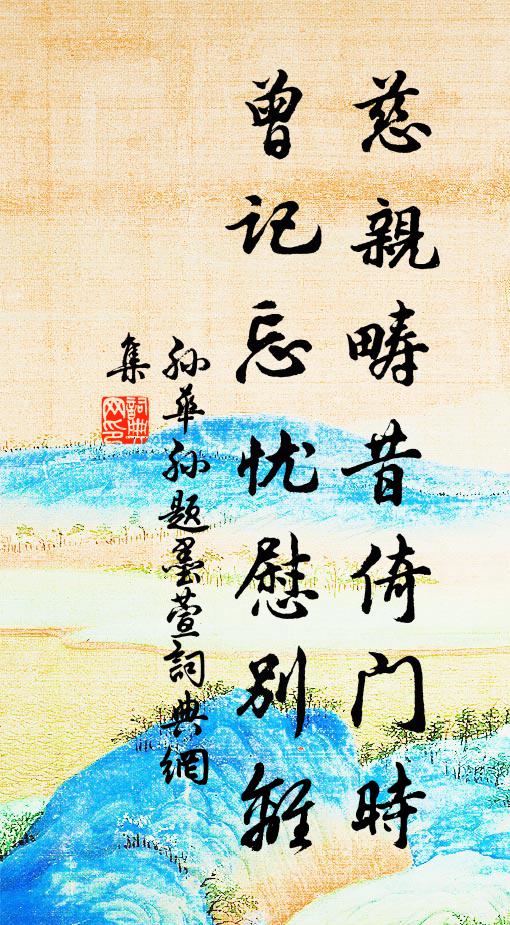 慈親畴昔倚门時
曾记忘忧慰别離
孙華孙题墨萱詞典網
集
詞典网印